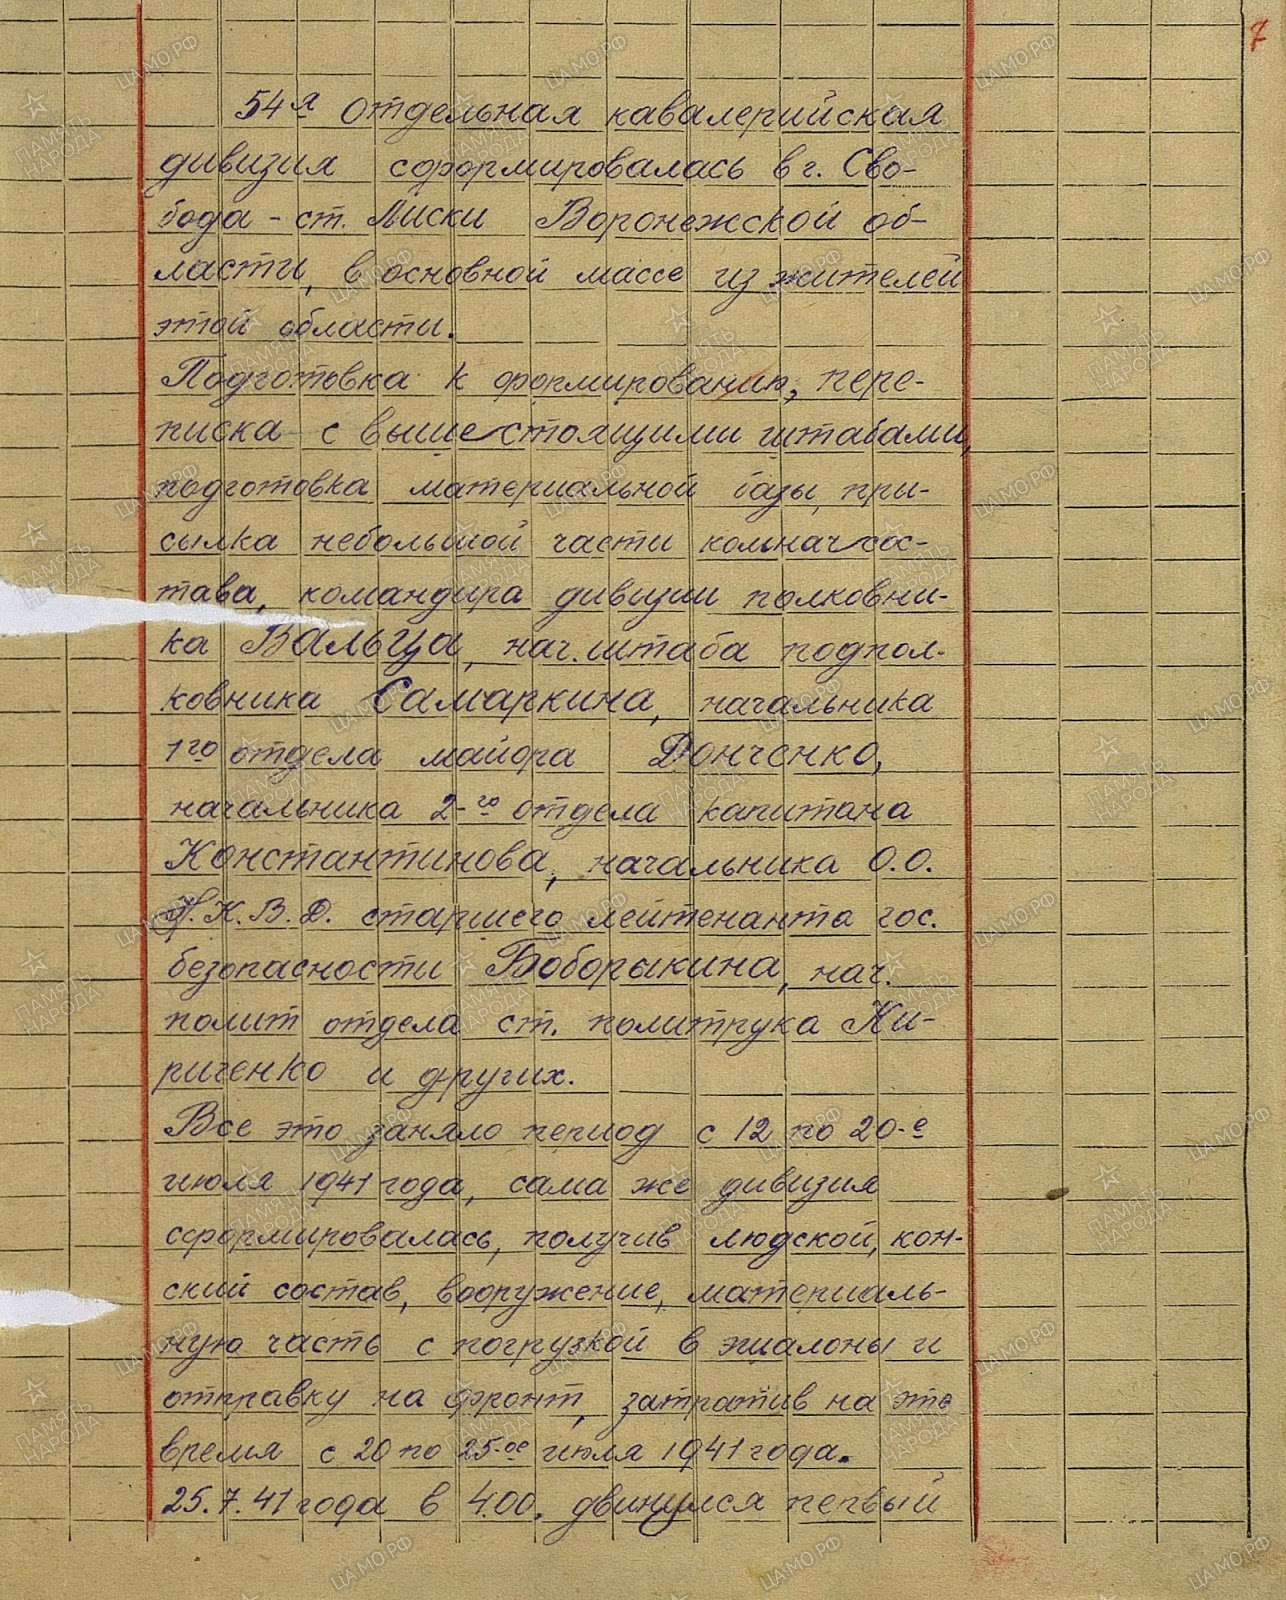 7
54я отдельная кавалерийская
дивизия сформировалась в г. Сво-
бода - ст. Лиски Воронежской об-
ласти, в основной массе из жителей
этой области.
Подготовка к формированию, пере-
писка с вышестоящими штабами,
подготовка материальной базы, при-
сылка небольшой части комначсос-
тава, командира дивизии полковни-
ка Вальца, нач. штаба подпол-
ковника Самаркина, начальника
1го отдела майора Донченко,
начальника 2-го отдела капитана
Константинова, начальника О.О.
Н.К.В.Д. старшего лейтенанта гос.
безопасности Боборыкина, нач.
полит отдела ст. политрука Ки-
риченко и других.
Все это заняло период с 12 по 20-е
июля 1941 года, сама же дивизия
сформировалась, получив людской, кон-
ский состав, вооружение, материаль-
ную часть с погрузкой в эшалоны и
отправку на фронт, затратив на это
время с 20 по 25-ое июля 1941 года.
25.7.41 года в 4.00. двинулся первый